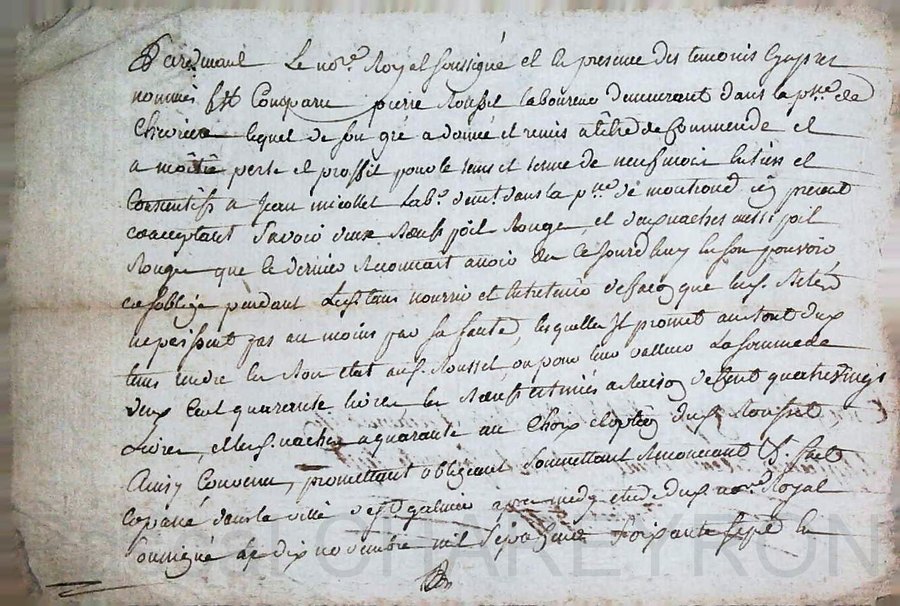 Pardevant Le no.re Royal soussigné et en presence des temoins Cy apres
nommés fut Comparu pierre Roussel laboureur demeurant dans la p.sse de
Chevrier lequel de son gré a donné et remis a titre de Commende et
a moitié perte et proffit pour le tems et terme de neuf mois entiers et
Consecutifs a Jean micollet Lab.r dem.t dans la p.sse de icy present
et acceptant Savoir deux Bœufs poil Rouge, et deux vaches aussi poil
Rouge que ce dernier Reconnait avoir du ce Jourdhuy en son pouvoir
et s'oblige pendant led. tems nourrir et entretenir de façon que
ne perissent pas au moins par sa faute, lesquelles Il promet au bout dud.
tems rendre en Bon etat aud. Roussel, ou pour leur valleur La somme de
deux Cent quarante livres, les Bœufs estimés a Raison de Cent quatre vingt
Livres, et les vaches a quarante au Choix et option dud. Roussel
Ainsy Convenu, promettant obligeant Soumettant Renoncant &. fait
et passé dans la ville de s.t galmier apres midy etude dud. no.re Royal
soussigné le dix novembre mil sept cent soixante sept En
CHAREYRON